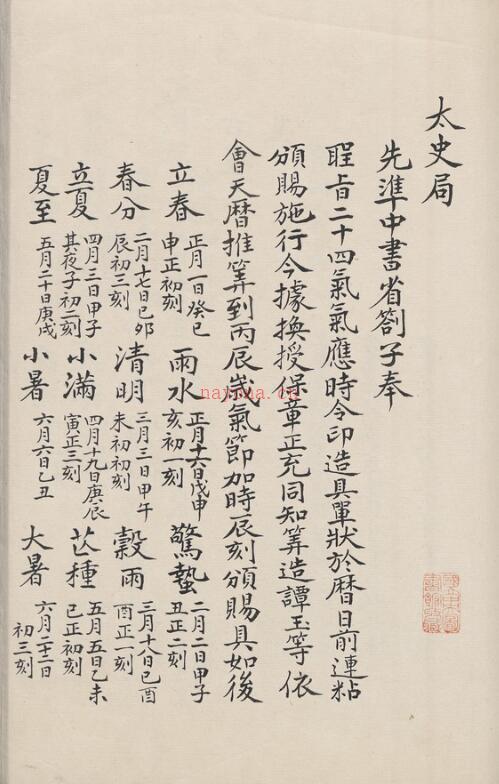 太史局
先準中書省劄子奉
聖旨二十四氣氣應時令印造具單狀於曆日前連粘
頒賜施行今據換授保章正充同知筭造譚玉等依
會天曆推筭到丙辰歲氣節加時辰刻頒賜具如後
立春 正月一日癸巳 申正初刻 雨水 正月十六日戊申 亥初一刻 驚蟄 二月二日甲子 丑正二刻
春分 二月十七日己卯 辰初三刻 清明 三月三日甲午 未初初刻 穀雨 三月十八日己酉 酉正一刻
立夏 四月三日甲子 其夜子初二刻 小滿 四月十九日庚辰 寅正三刻 芒種 五月五日乙未 巳正初刻
夏至 五月二十日庚戌 小暑 六月六日乙丑 大暑 六月二十二日 初三刻
nayona.cn